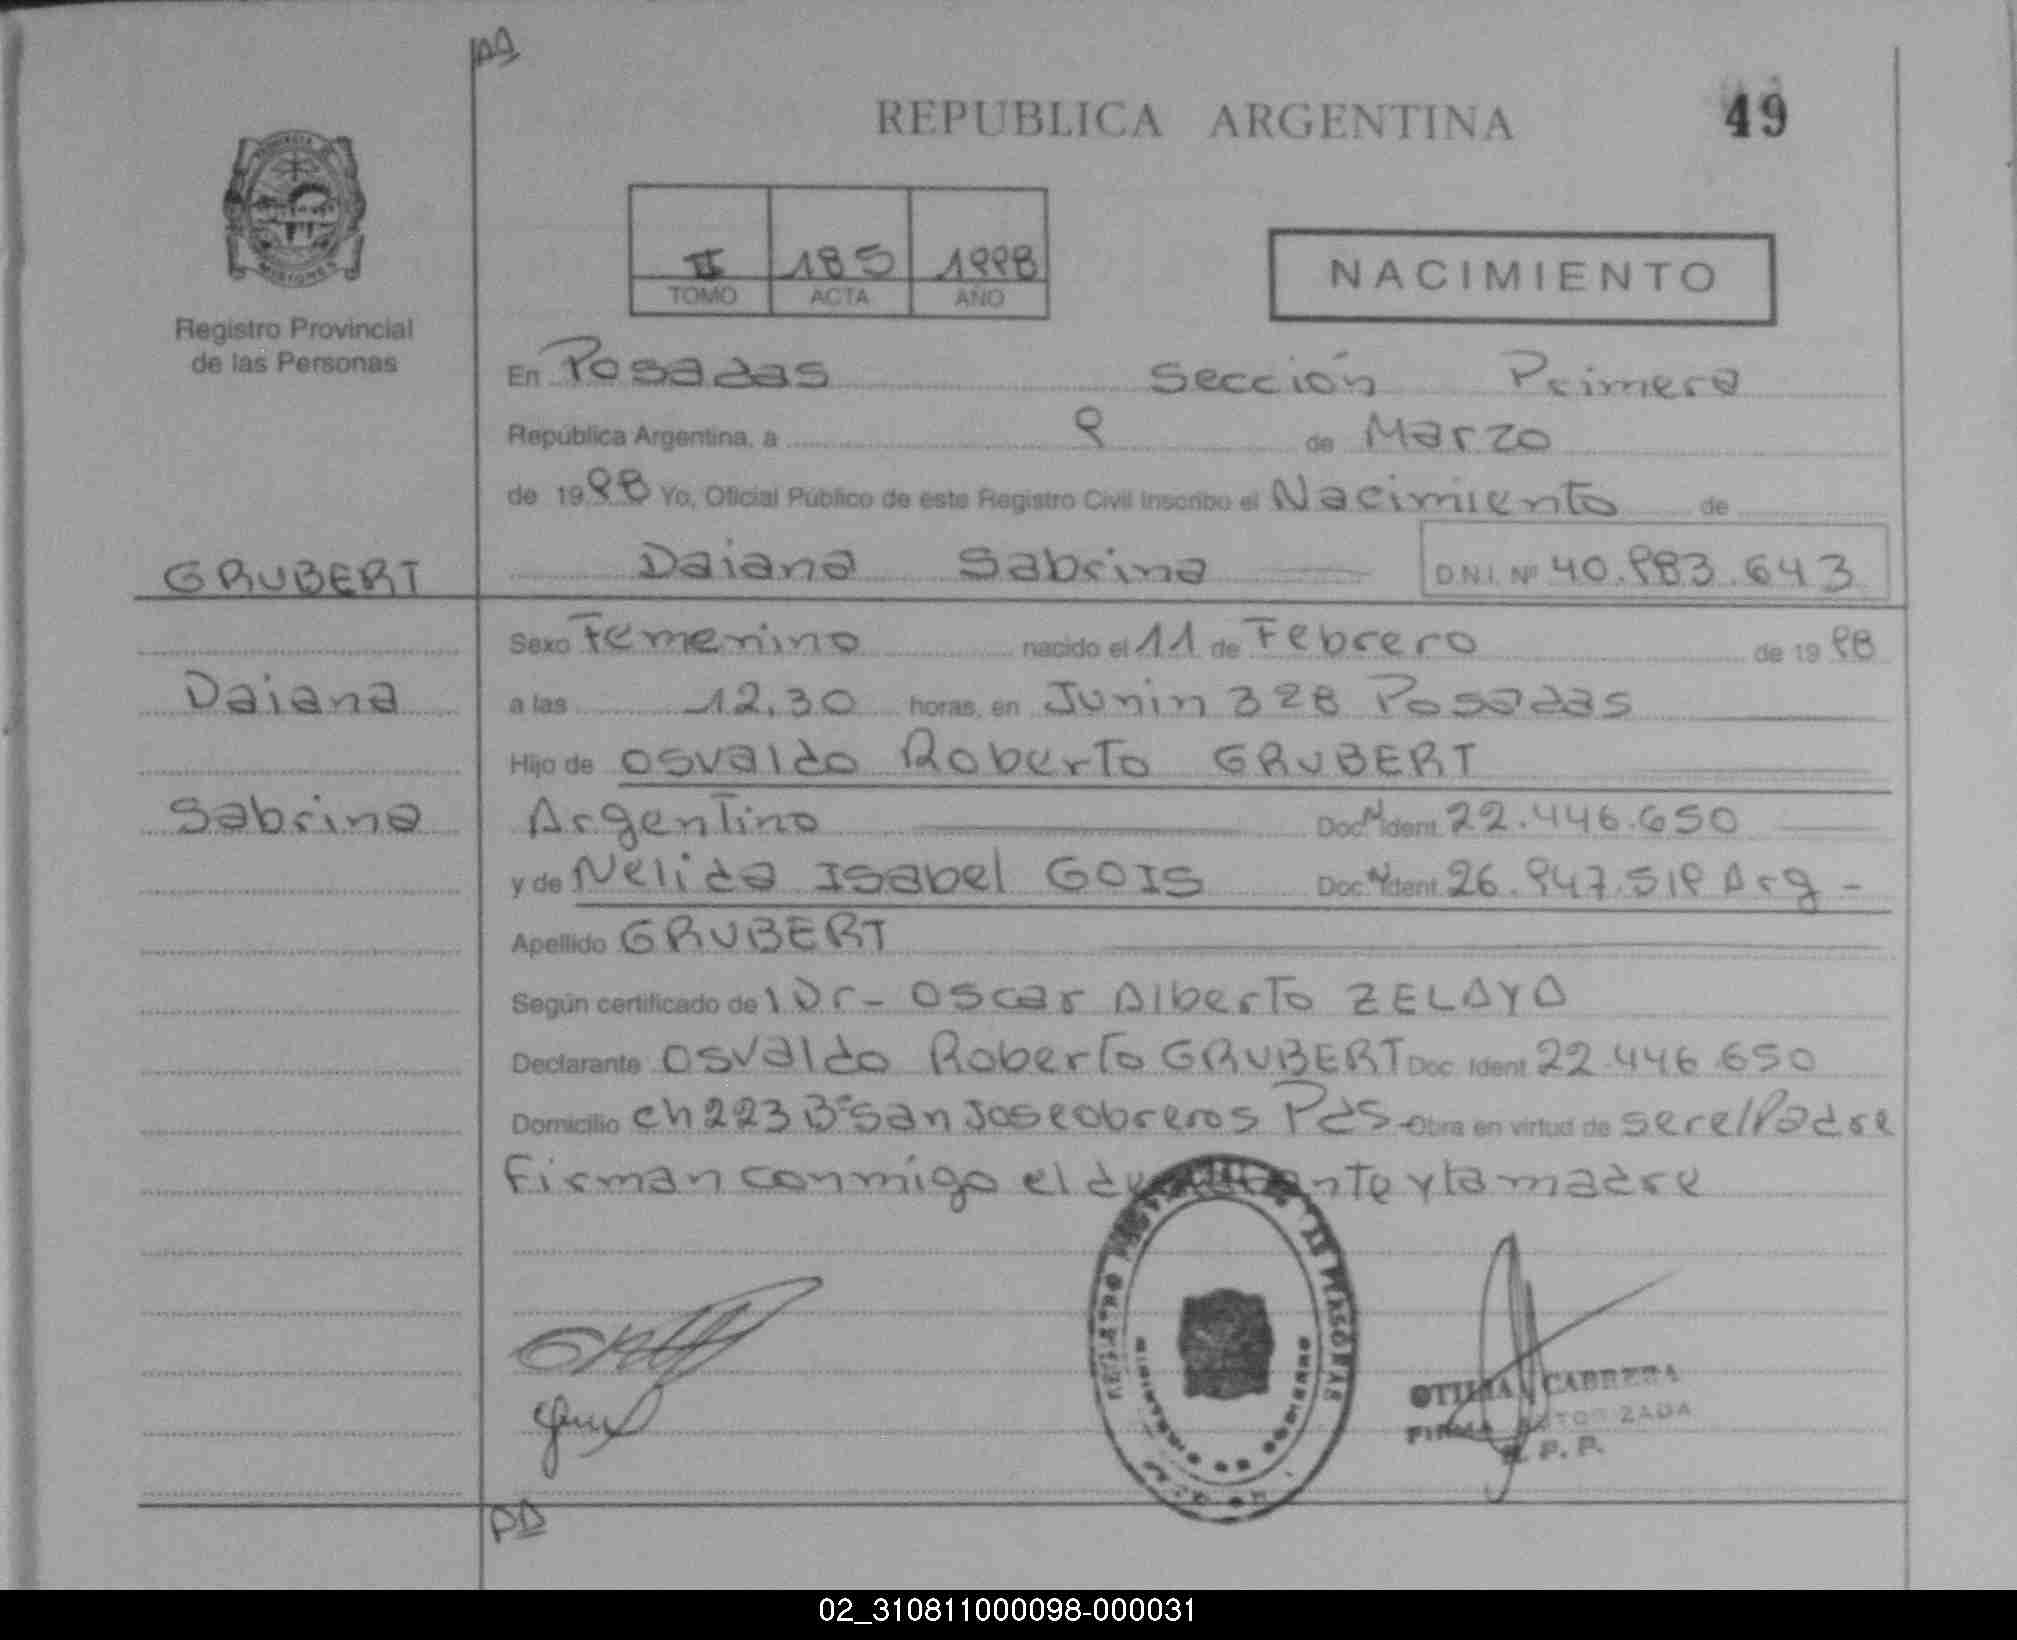 AA
REPUBLICA ARGENTINA
49
II 185 1998
TOMO ACTA AÑO
NACIMIENTO
PROVINCIA DE MISIONES
Registro Provincial
de las Personas
En Posadas Sección Primera
República Argentina, a 9 de Marzo
de 1998 Yo, Oficial Público de este Registro Civil Inscribo el Nacimiento de
GRUBERT Daiana Sabrina D.N.I. Nº 40.983.643
Sexo Femenino nacido el 11 de Febrero de 1998
Daiana a las 12.30 horas, en Junin 328 Posadas
Hijo de Osvaldo Roberto GRUBERT
Sabrina Argentino Doc.N Ident. 22.446.650
y de Nelida Isabel GOIS Doc.N Ident. 26.947.519 Arg -
Apellido GRUBERT
Según certificado de l Dr- Oscar Alberto ZELAYA
Declarante Osvaldo Roberto GRUBERT Doc. Ident. 22.446.650
Domicilio ch 223 Bº San Jose obreros Pds- Obra en virtud de ser el Padre
Firman conmigo el declarante y la madre
OTILIA CABRERA
FIRMA AUTORIZADA
R. P. P.
PA
02_310811000098-000031